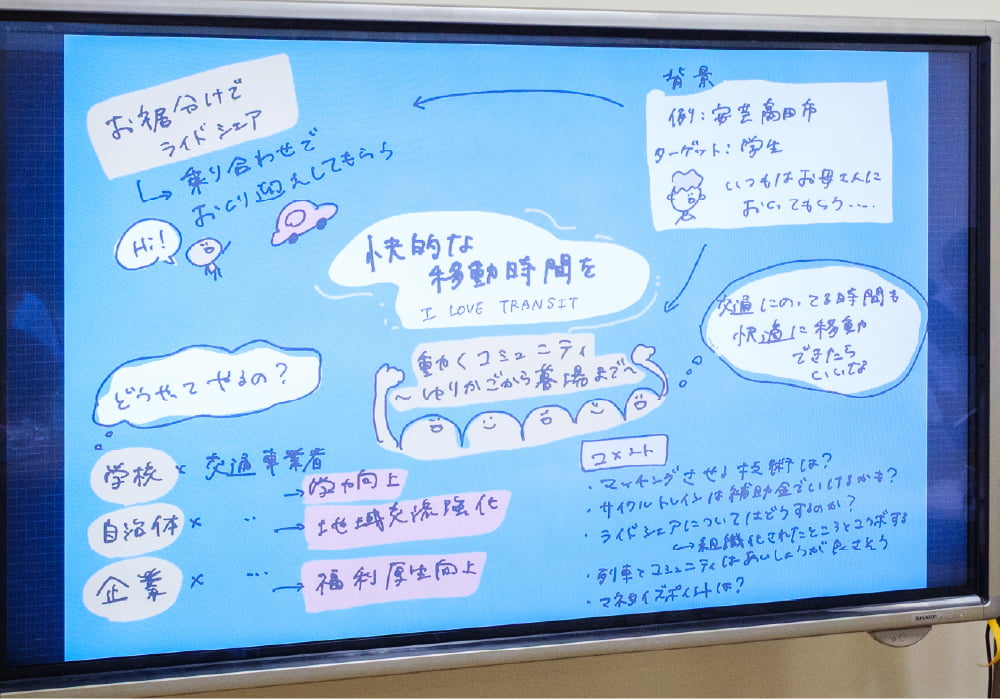 お裾分けで
ライドシェア
乗り合わせで
おくり迎えしてもらう
Hi!
背景
例：安芸高田市
ターゲット：学生
いつもはお母さんに
おくってもらう……
快的な
移動時間を
I LOVE TRANSIT
動くコミュニティ
～ゆりかごから墓場まで～
交通にのってる時間も
快適に移動
できたら
いいな
どうやってやるの？
学校 × 交通事業者
→学力向上
自治体 × 〃 → 地域交流強化
企業 × … → 福利厚生向上
コメント
・マッチングさせる技術は？
・サイクルトレインは補助金でいけるかも？
・ライドシェアについてはどうするのか？
↪組織化されたところとコラボする
・列車とコミュニティはあいしょうが良さそう
・マネタイズポイントは？
SHARP